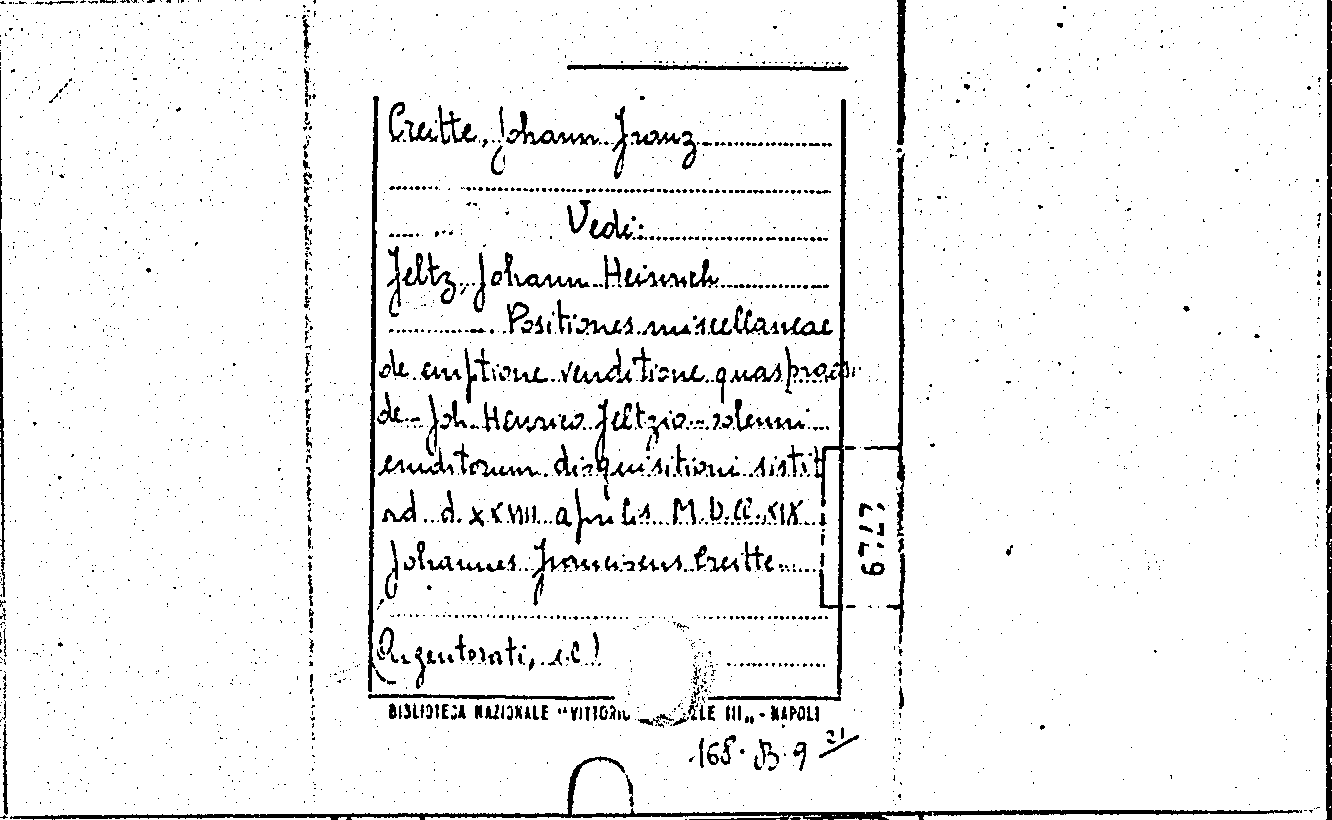 Creitte, Johann Franz
Vedi:
Feltz, Johann Heinrich
Positiones miscellaneae
de emptione venditione quas praesi-
de - Joh. Henrico Feltzio - solemni
eruditorum disquisitioni sistit
ad d. XXVIII aprilis M.D.CC.XIX
Johannes Franciscus Creitte
Argentorati,
BIBLIOTECA NAZIONALE "VITTORIO ELE III„ - NAPOLI
168. B. 9 21
6727